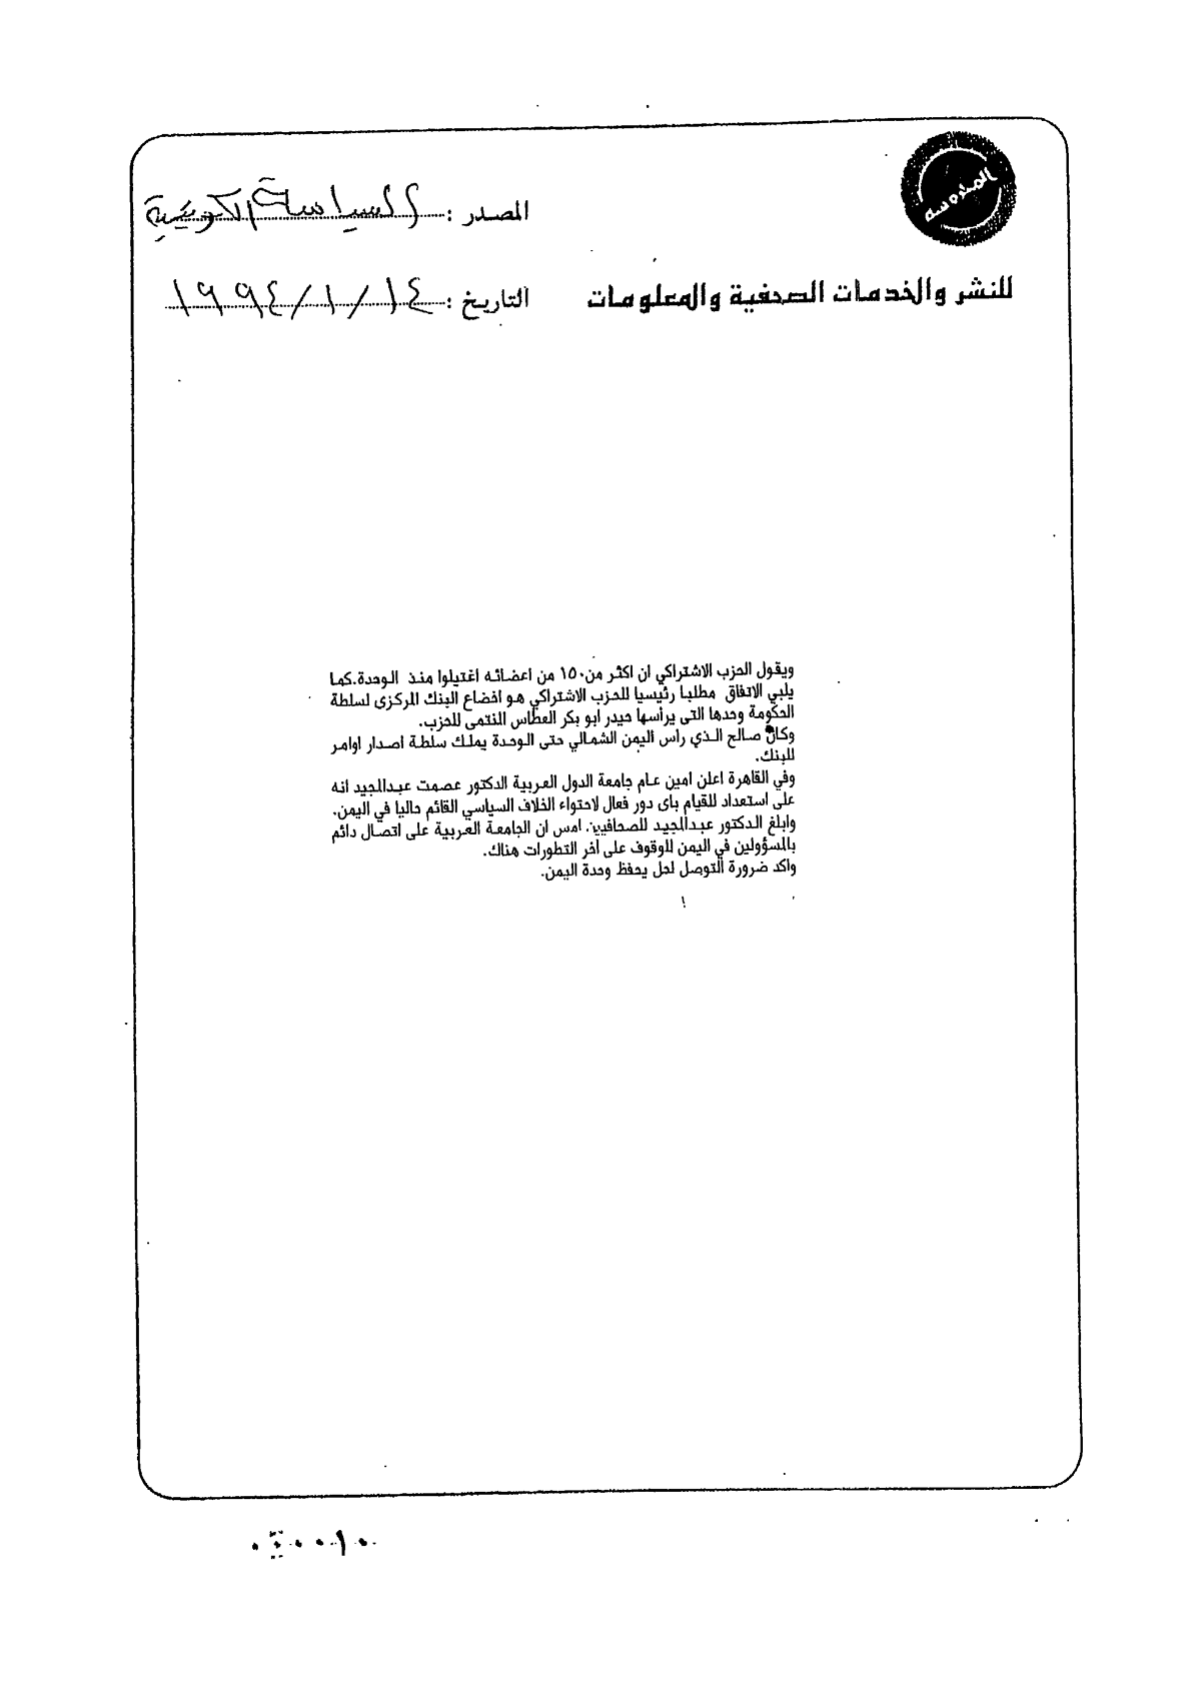 المصدر : السياسة الكويتية
للنشر والخدمات الصحفية والمعلومات
التاريخ : ١٤ / ١ / ١٩٩٤
ويقول الحزب الاشتراكي ان اكثر من ١٥٠ من اعضائه اغتيلوا منذ الوحدة.كما
يلبي الاتفاق مطلبا رئيسيا للحزب الاشتراكي هو اخضاع البنك المركزى لسلطة
الحكومة وحدها التى يرأسها حيدر ابو بكر العطاس المنتمى للحزب.
وكان صالح الذي راس اليمن الشمالي حتى الوحدة يملك سلطة اصدار اوامر
للبنك.
وفي القاهرة اعلن امين عام جامعة الدول العربية الدكتور عصمت عبدالمجيد انه
على استعداد للقيام باى دور فعال لاحتواء الخلاف السياسي القائم حاليا في اليمن.
وابلغ الدكتور عبدالمجيد للصحافيين. امس ان الجامعة العربية على اتصال دائم
بالمسؤولين في اليمن للوقوف على آخر التطورات هناك.
واكد ضرورة التوصل لحل يحفظ وحدة اليمن.